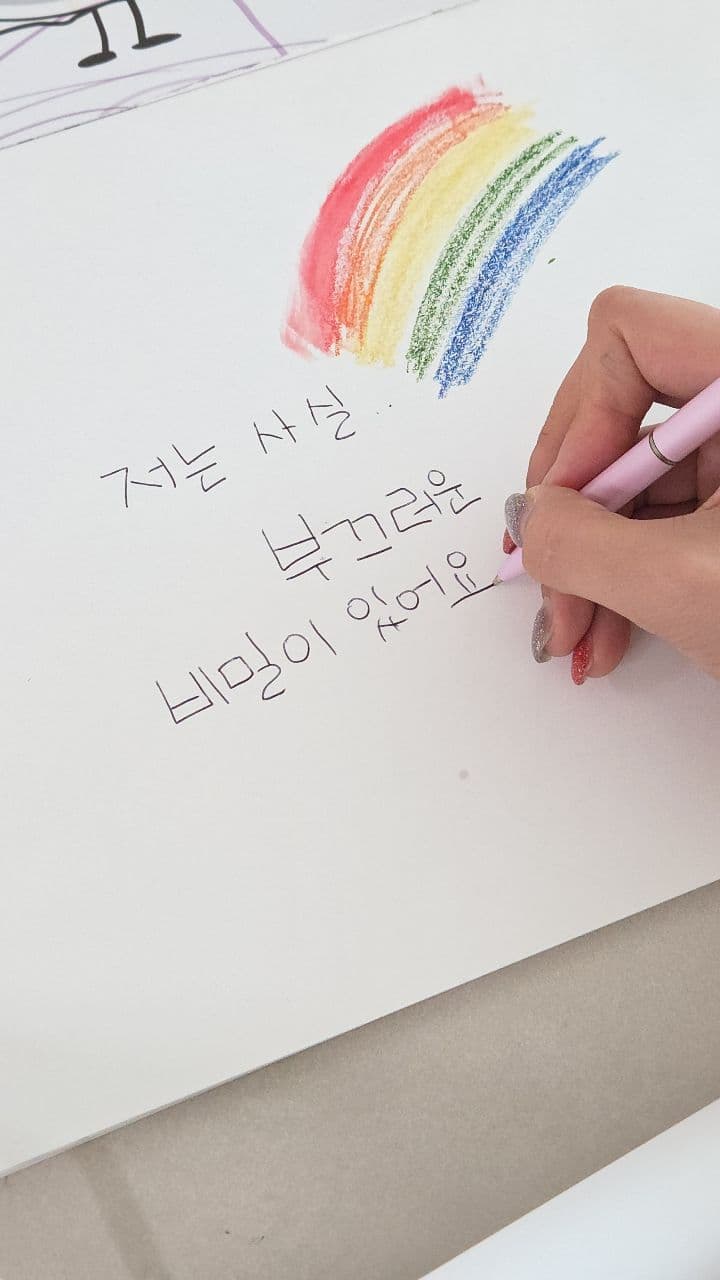 저는 사실..
부끄러운
비밀이 있어요